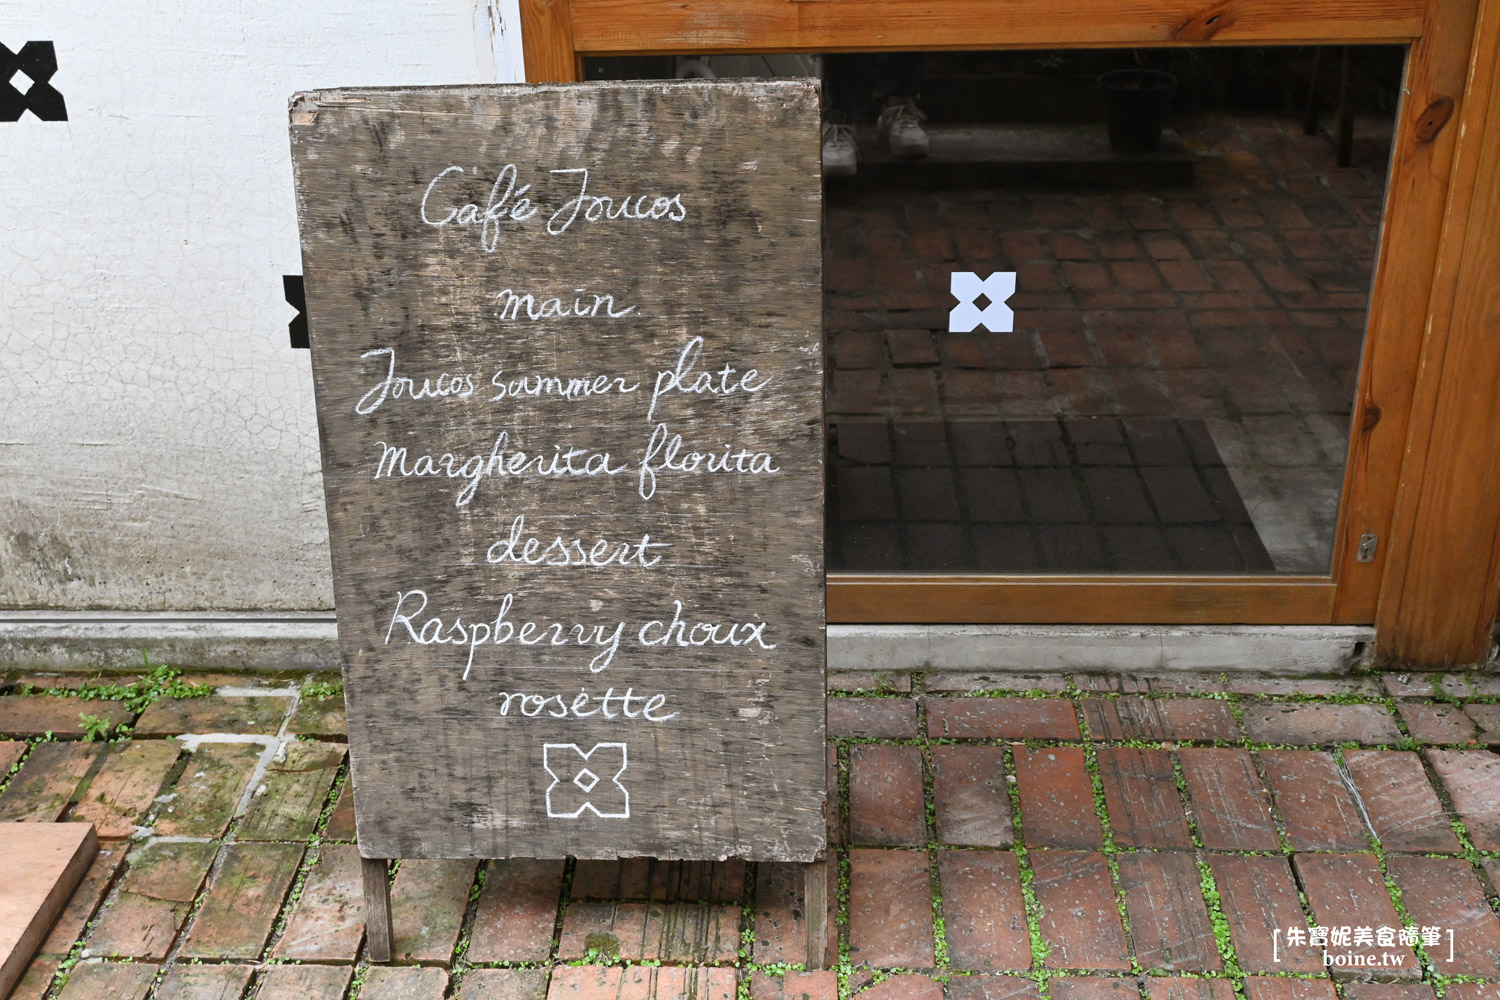 Café Joucos
main
Joucos summer plate
Margherita florita
dessert
Raspberry choux
rosètte
朱寶妮美食隨筆
boine.tw